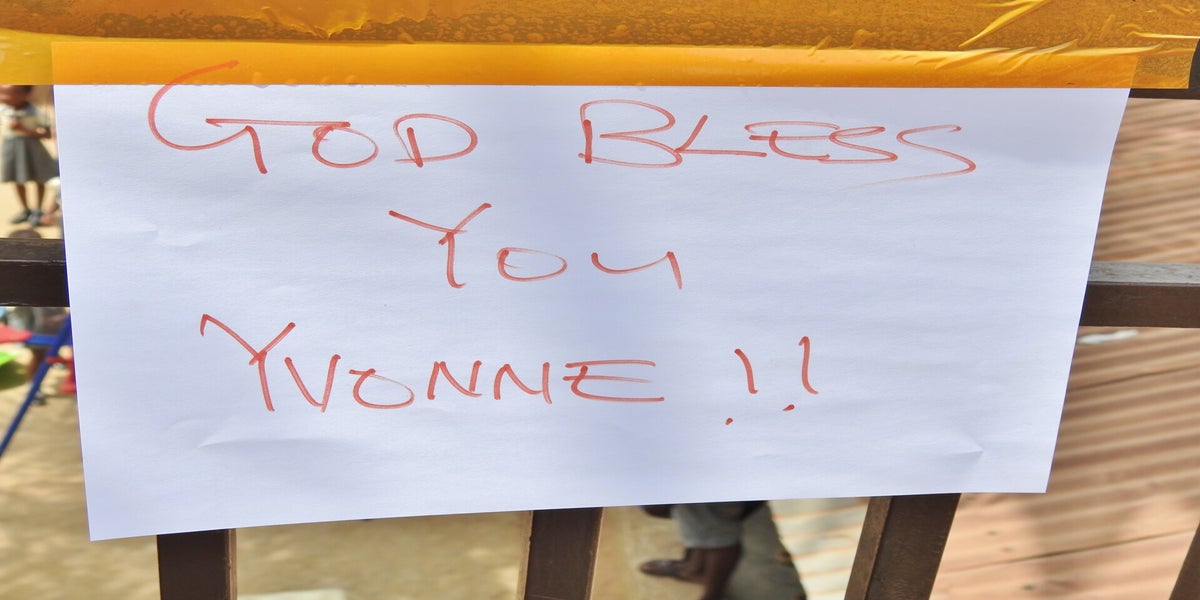 GOD BLESS
YOU
YVONNE !!